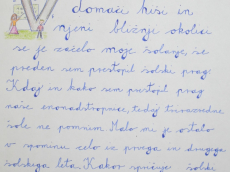 V domači hiši in
njeni bližnje okolici
se je začelo moje šolanje, še
preden sem prestopil šolski prag.
Kdaj in kako sem prestopil prag
naše enonadstropnice, tedaj trirazredne
šole ne pomnim. Malo mi je ostalo
v spominu celo iz prvega in drugega
šolskega leta. Kakor spričuje šolski